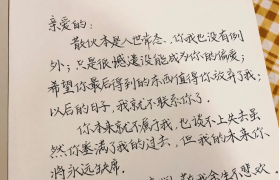 亲爱的:
散伙本是人世常态、你我也没有例
外;只是很感遗没能成为你的偏爱;
希望你最后得到的东西值得你放弃了我;
以后的日子,我就不联系你了.
你本来就不属于我,也谈不上失去虽
然你塞满了我的过去,但我的未来你
将永远缺席.
余生不悲欢